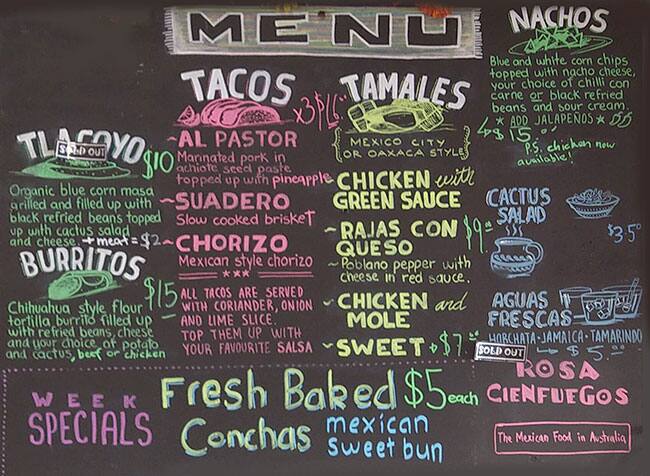 MENU
TLACOYO
SOLD OUT
$10
Organic blue corn masa
grilled and filled up with
black refried beans topped
up with cactus salad
and cheese. + meat = $2
BURRITOS
$15
Chihuahua style flour
tortilla burrito filled up
with refried beans, cheese
and your choice of potato
and cactus, beef or chicken
TACOS
x3 $16
~AL PASTOR
Marinated pork in
achiote seed paste
topped up with pineapple
~SUADERO
Slow cooked brisket
~CHORIZO
Mexican style chorizo
ALL TACOS ARE SERVED
WITH CORIANDER, ONION
AND LIME SLICE.
TOP THEM UP WITH
YOUR FAVOURITE SALSA
TAMALES
MEXICO CITY
OR OAXACA STYLE
~CHICKEN with
GREEN SAUCE
~RAJAS CON
QUESO
$9.00
Poblano pepper with
cheese in red sauce.
~CHICKEN and
MOLE
~SWEET → $7.00
NACHOS
Blue and white corn chips
topped with nacho cheese,
your choice of chilli con
carne or black refried
beans and sour cream.
* ADD JALAPEÑOS *
$15.00
P.S. chicken now
available!
CACTUS
SALAD
$3.50
AGUAS
FRESCAS
HORCHATA-JAMAICA-TAMARINDO
SOLD OUT
$5.00
ROSA
CIENFUEGOS
The Mexican Food in Australia
WEEK
SPECIALS
Fresh Baked $5 each
Conchas mexican
sweet bun